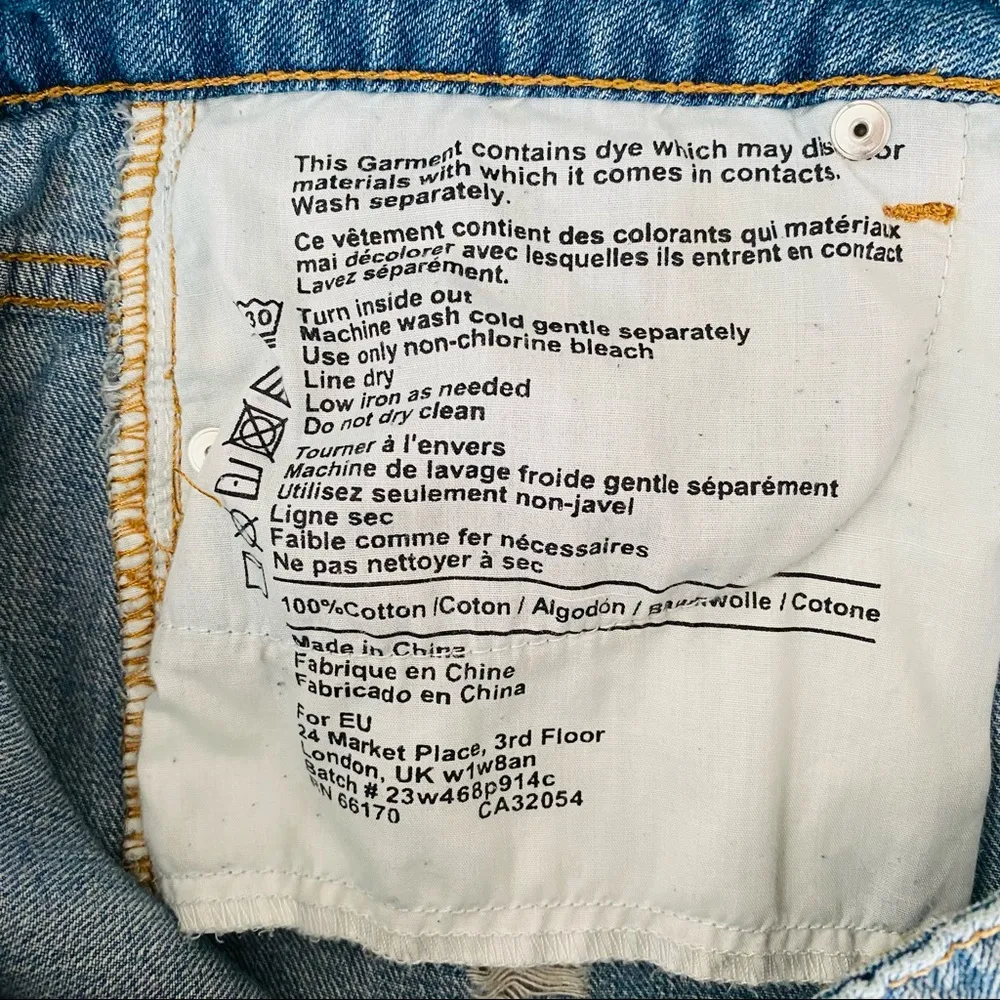 This Garment contains dye which may
materials with which it comes in contacts.
Wash separately.
Ce vêtement contient des colorants qui matériaux
mai décolorer avec lesquelles ils entrent en contact
Lavez séparément.
30
Turn inside out
Machine wash cold gentle separately
Use only non-chlorine bleach
Line dry
Low iron as needed
Do not dry clean
Tourner à l'envers
Machine de lavage froide gentle séparément
Utilisez seulement non-javel
Ligne sec
Faible comme fer nécessaires
Ne pas nettoyer à sec
100%Cotton /Coton / Algodón / / Cotone
Made in China
Fabrique en Chine
Fabricado en China
For EU
24 Market Place, 3rd Floor
London, UK w1w8an
Batch # 23w468p914c
RN 66170 CA32054